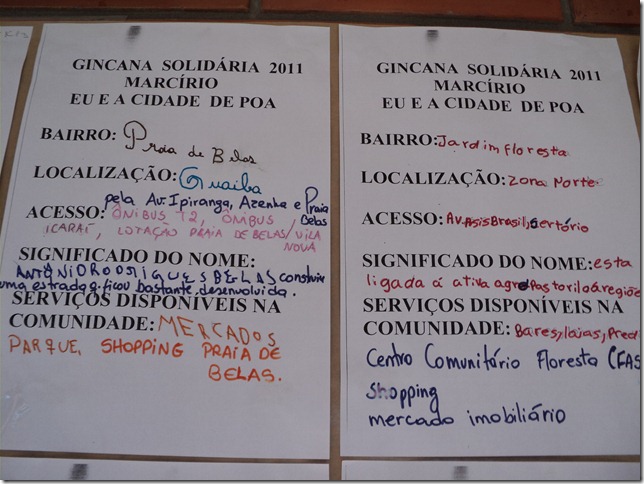 GINCANA SOLIDÁRIA 2011
MARCÍRIO
EU E A CIDADE DE POA
BAIRRO: Praia de Belas
LOCALIZAÇÃO: Guaiba
pela Av. Ipiranga, Azenha e Praia
ACESSO: ÔNIBUS T2, ÔNIBUS, Belas
ICARAÍ, LOTAÇÃO PRAIA DE BELAS/VILA
NOVA
SIGNIFICADO DO NOME:
ANTÔNIO RODRIGUES BELAS construiu
uma estrada q. ficou bastante desenvolvida.
SERVIÇOS DISPONÍVEIS NA
COMUNIDADE: MERCADOS
PARQUE, SHOPPING PRAIA DE
BELAS.
GINCANA SOLIDÁRIA 2011
MARCÍRIO
EU E A CIDADE DE POA
BAIRRO: Jardim Floresta
LOCALIZAÇÃO: Zona Norte
ACESSO: Av. Asis Brasil, Sertório
SIGNIFICADO DO NOME: esta
ligada á ativa agropastoril á região
SERVIÇOS DISPONÍVEIS NA
COMUNIDADE: Bares, lojas, Pred
Centro Comunitário Floresta CFAS
Shopping
mercado imobiliário